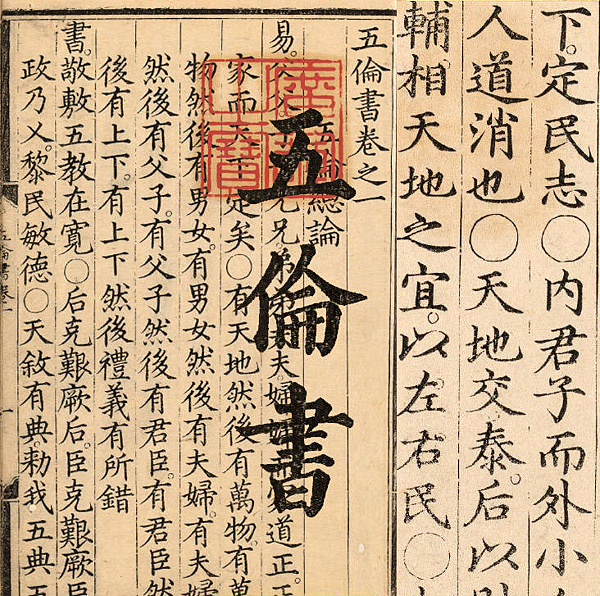 下。定民志○內君子而外小
人道消也○天地交泰。后以財
輔相天地之宜。以左右民○
五倫書
廣運之寶
五倫書卷之一
五倫總論
易。父父兄兄弟弟夫夫婦婦道正。正
家而天下定矣○有天地然後有萬物。有萬
物然後有男女。有男女然後有夫婦。有夫婦
然後有父子。有父子然後有君臣。有君臣然
後有上下。有上下然後禮義有所錯
書。敬敷五教在寬○后克艱厥后。臣克艱厥臣
政乃乂。黎民敏德○天敘有典。勑我五典五